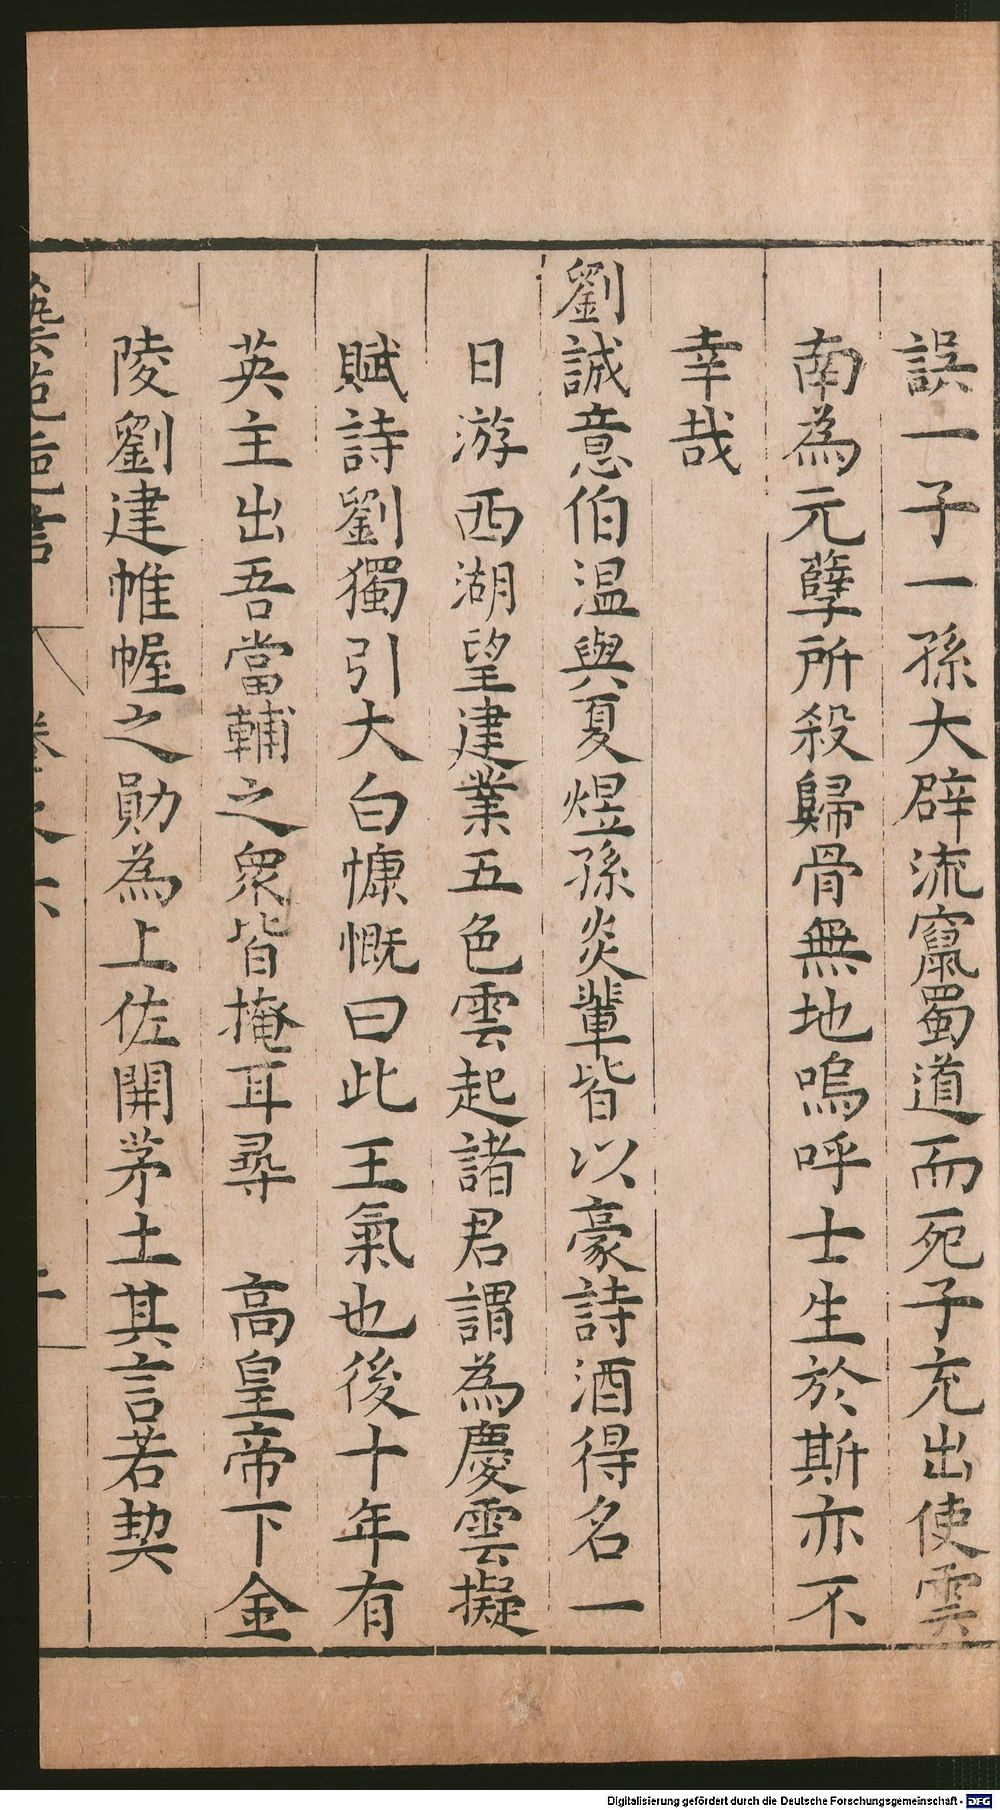 誤一子一孫大辟流竄蜀道而死子充出使雲
南為元孽所殺歸骨無地嗚呼士生於斯亦不
幸哉
劉誠意伯温與夏煜孫炎輩皆以豪詩酒得名一
日游西湖望建業五色雲起諸君謂為慶雲擬
賦詩劉獨引大白慷慨曰此王氣也後十年有
英主出吾當輔之衆皆掩耳尋　高皇帝下金
陵劉建帷幄之勛為上佐開茅土其言若契
藝苑巵言　卷之六
Digitalisierung gefördert durch die Deutsche Forschungsgemeinschaft - DFG